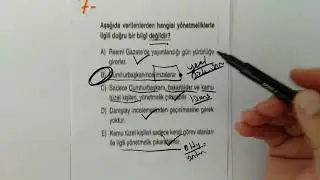 7-
Aşağıda verilenlerden hangisi yönetmeliklerle
ilgili doğru bir bilgi değildir?
A) Resmi Gazete'de yayımlandığı gün yürürlüğe
girerler.
B) Cumhurbaşkanınca imzalanır.
C) Sadece Cumhurbaşkanı, bakanlıklar ve kamu
tüzel kişileri, yönetmelik çıkarabilir
D) Danıştay incelemesinden geçirilmesine gerek
yoktur.
E) Kamu tüzel kişileri sadece kendi görev alanları
ile ilgili yönetmelik çıkarabilirler.